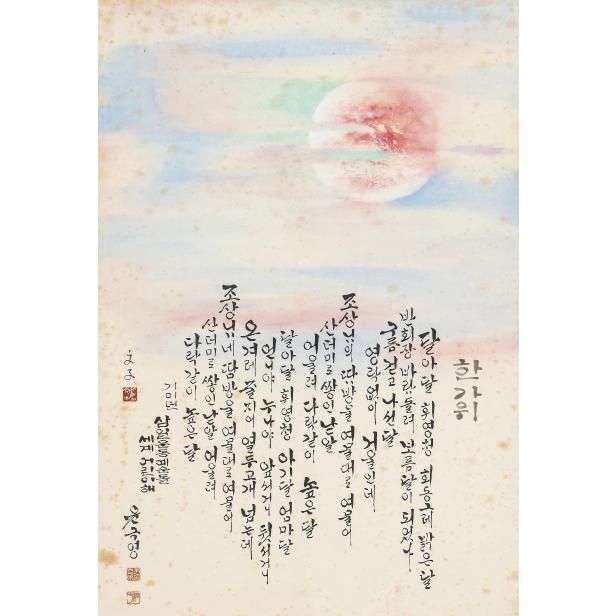 한가위
달아 달 휘영청 회동그레 밝은 달
반회장 바람 들려 보름달이 되었나
구름 걷고 나선 달
영락없이 거울인데
조상님의 땀방울 여물대로 여물어
산더미로 쌓인 낟알
어울려 다락같이 높은 달
달아 달 휘영청 아기 달 엄마 달
언니야 누나야 앞서거니 뒷서거니
온겨레 줄지어 열두고개 넘는데
조상님네 땀방울 여물대로 여물어
산더미로 쌓인 낟알 어울려
다락같이 높은 달
기미년
삼일운동예순돌
세계어린이해
윤극영